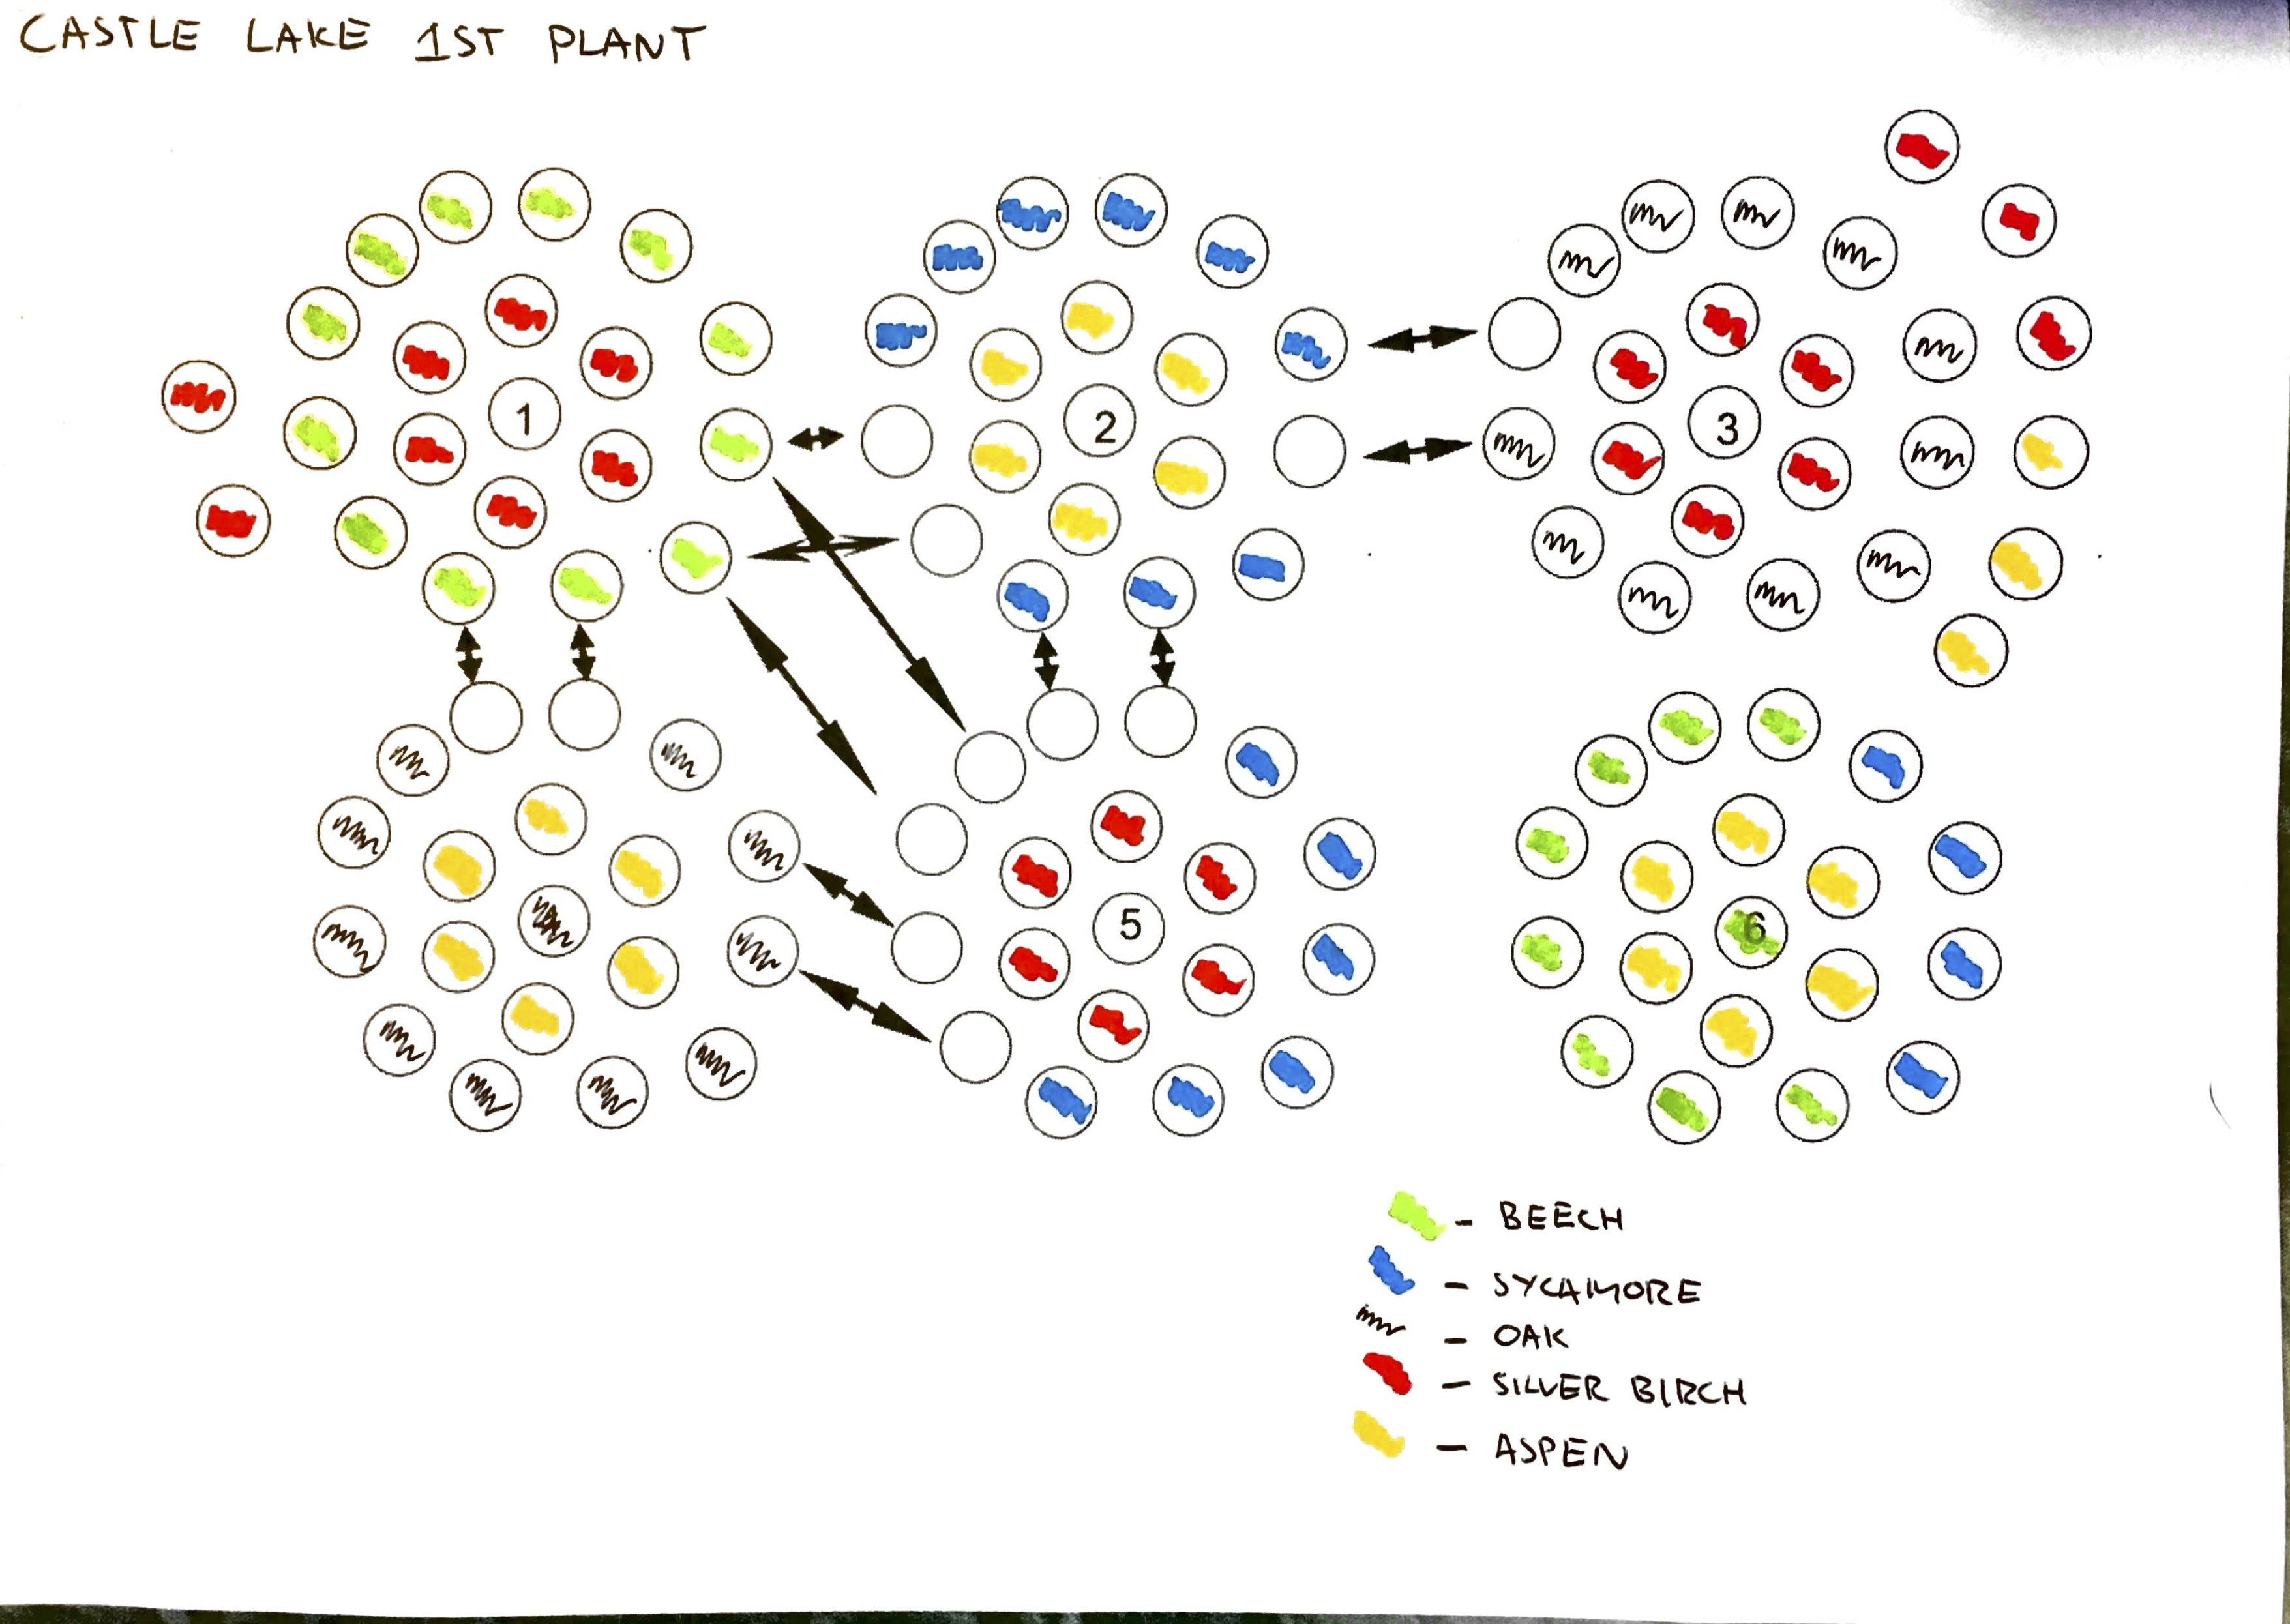 CASTLE LAKE 1ST PLANT
1
2
3
5
6
- BEECH
- SYCAMORE
- OAK
- SILVER BIRCH
- ASPEN